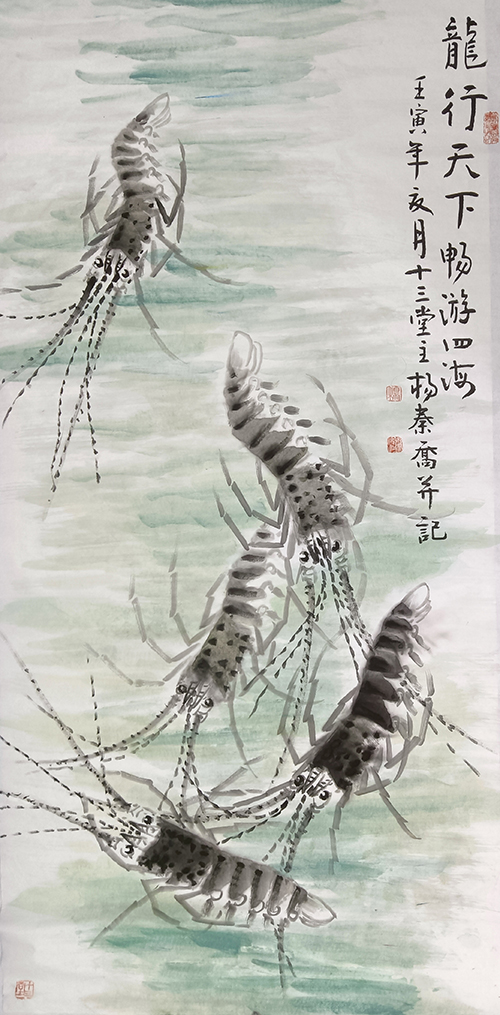 龍行天下暢游四海
壬寅年亥月十三堂主楊秦喬并記